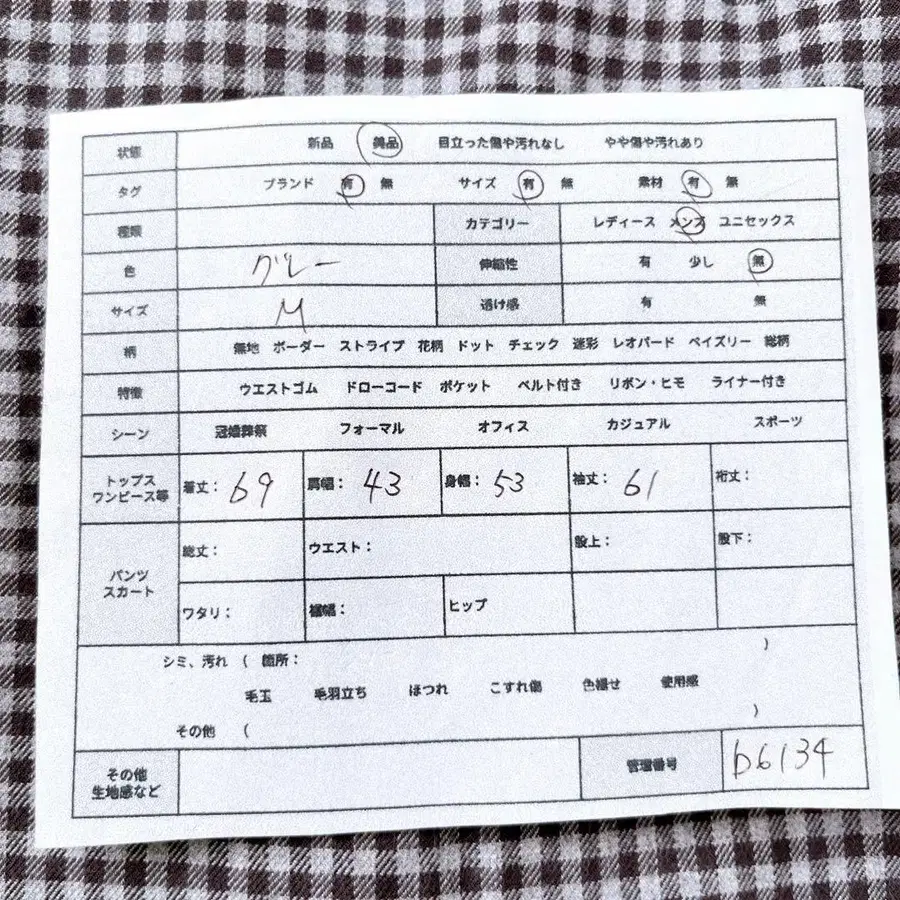 状態 新品 美品 目立った傷や汚れなし やや傷や汚れあり
タグ ブランド 有 無 サイズ 有 無 素材 有 無
種類 カテゴリー レディース メンズ ユニセックス
色 グレー 伸縮性 有 少し 無
サイズ M 透け感 有 無
柄 無地 ボーダー ストライプ 花柄 ドット チェック 迷彩 レオパード ペイズリー 総柄
特徴 ウエストゴム ドローコード ポケット ベルト付き リボン・ヒモ ライナー付き
シーン 冠婚葬祭 フォーマル オフィス カジュアル スポーツ
トップス
ワンピース等 着丈: 69 肩幅: 43 身幅: 53 袖丈: 61 裄丈:
パンツ
スカート
総丈: ウエスト: 股上: 股下:
ワタリ: 裾幅: ヒップ
シミ、汚れ ( 箇所: )
毛玉 毛羽立ち ほつれ こすれ傷 色褪せ 使用感
その他 ( )
その他
生地感など 管理番号 b6134